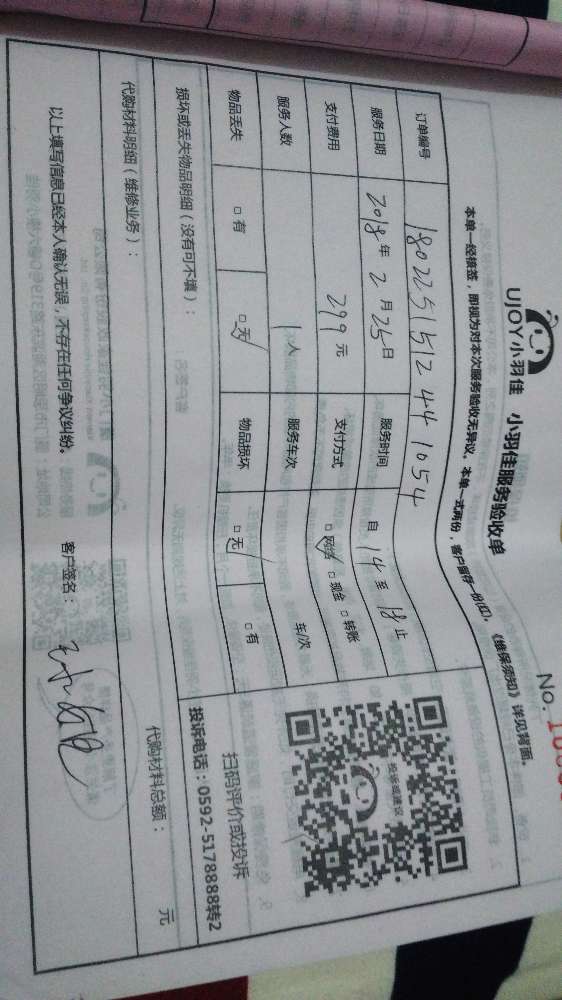 No.
UJOY小羽佳 小羽佳服务验收单
本单一经核签，即视为对本次服务验收无异议。本单一式两份，客户留存一份(红)，《维保须知》详见背面。
订单编号 180225151244 1054
服务日期 2018年2月25日 服务时间 自14至18止
支付费用 299元 支付方式 ☑网络 □现金 □转账
服务人数 1人 服务车次 车/次
物品丢失 □有 ☑无 物品损坏 ☑无 □有
投诉或建议
扫码评价或投诉
投诉电话：0592-5178888转2
损坏或丢失物品明细（没有可不填）：
代购材料明细（维修业务）：
代购材料总额： 元
以上填写信息已经本人确认无误，不存在任何争议纠纷。 客户签名：